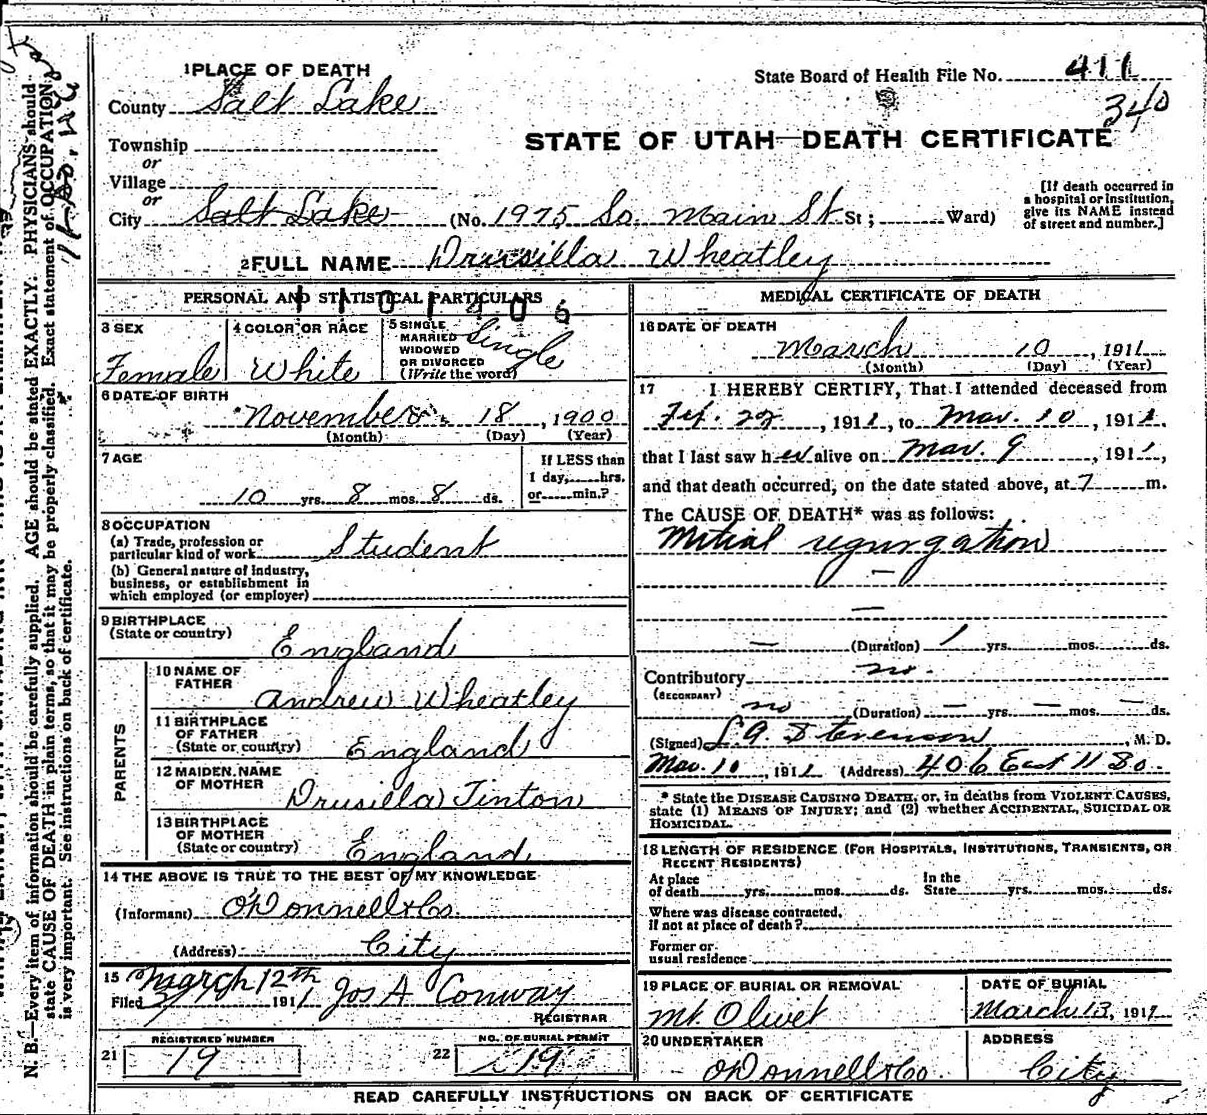 1 PLACE OF DEATH
State Board of Health File No. 411
340
County Salt Lake
STATE OF UTAH—DEATH CERTIFICATE
Township
or
Village
or
City Salt Lake (No. 1975 So. Main St St; Ward)
[If death occurred in
a hospital or institution,
give its NAME instead
of street and number.]
2 FULL NAME Drusilla Wheatley
PERSONAL AND STATISTICAL PARTICULARS
1101406
3 SEX
Female
4 COLOR OR RACE
White
5 SINGLE
MARRIED
WIDOWED
OR DIVORCED
(Write the word)
Single
6 DATE OF BIRTH
November 18, 1900
(Month) (Day) (Year)
7 AGE
10 yrs. 8 mos. 8 ds.
If LESS than
1 day, hrs.
or min.?
8 OCCUPATION
(a) Trade, profession or
particular kind of work Student
(b) General nature of industry,
business, or establishment in
which employed (or employer)
9 BIRTHPLACE
(State or country) England
PARENTS
10 NAME OF
FATHER Andrew Wheatley
11 BIRTHPLACE
OF FATHER
(State or country) England
12 MAIDEN NAME
OF MOTHER Drusilla Tinton
13 BIRTHPLACE
OF MOTHER
(State or country) England
14 THE ABOVE IS TRUE TO THE BEST OF MY KNOWLEDGE
(Informant) O'Donnell & Co.
(Address) City
15 March 12th
Filed 1911 Jos A Conway
REGISTRAR
21 REGISTERED NUMBER
19
22 NO. OF BURIAL PERMIT
19
MEDICAL CERTIFICATE OF DEATH
16 DATE OF DEATH
March 10, 1911
(Month) (Day) (Year)
17 I HEREBY CERTIFY, That I attended deceased from
Feb. 22, 1911, to Mar. 10, 1911,
that I last saw her alive on Mar. 9, 1911,
and that death occurred, on the date stated above, at 7 m.
The CAUSE OF DEATH* was as follows:
Mitial regurgation
(Duration) 1 yrs. mos. ds.
Contributory no.
(SECONDARY)
no (Duration) — yrs. — mos. — ds.
(Signed) L. A. Stevenson M. D.
Mar. 10, 1911 (Address) 406 East 11 So.
* State the DISEASE CAUSING DEATH, or, in deaths from VIOLENT CAUSES,
state (1) MEANS OF INJURY; and (2) whether ACCIDENTAL, SUICIDAL OR
HOMICIDAL.
18 LENGTH OF RESIDENCE (FOR HOSPITALS, INSTITUTIONS, TRANSIENTS, OR
RECENT RESIDENTS)
At place
of death yrs. mos. ds.
In the
State yrs. mos. ds.
Where was disease contracted,
if not at place of death?
Former or
usual residence
19 PLACE OF BURIAL OR REMOVAL
Mt. Olivet
DATE OF BURIAL
March 13, 1911
20 UNDERTAKER
O'Donnell & Co.
ADDRESS
City
READ CAREFULLY INSTRUCTIONS ON BACK OF CERTIFICATE
N. B.—Every item of information should be carefully supplied. AGE should be stated EXACTLY. PHYSICIANS should
state CAUSE OF DEATH in plain terms, so that it may be properly classified. Exact statement of OCCUPATION
is very important. See instructions on back of certificate.